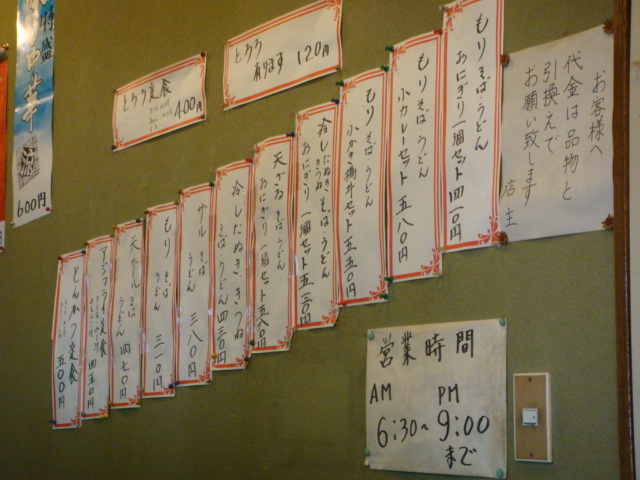 お客様へ
代金は品物と
引換えで
お願い致します
店主
もりそば・うどん
おにぎり一個セット 四一〇円
もりそば・うどん
小カレーセット 五八〇円
もりそば うどん
小かき揚丼セット 五五〇円
冷したぬき そば・うどん
きつね
おにぎり一個セット 五三〇円
天ざる そば・うどん
おにぎり一個セット 五八〇円
冷したぬき・きつね
そば・うどん 四三〇円
ザル そば
うどん 三八〇円
もり そば
うどん 三一〇円
天ザル そば
うどん 四七〇円
アジフライ定食
四五〇円
とんかつ定食
五〇〇円
とろろ
有ります 120円
とろろ定食
400円
特盛
中華
600円
営業時間
AM PM
6:30~9:00
まで